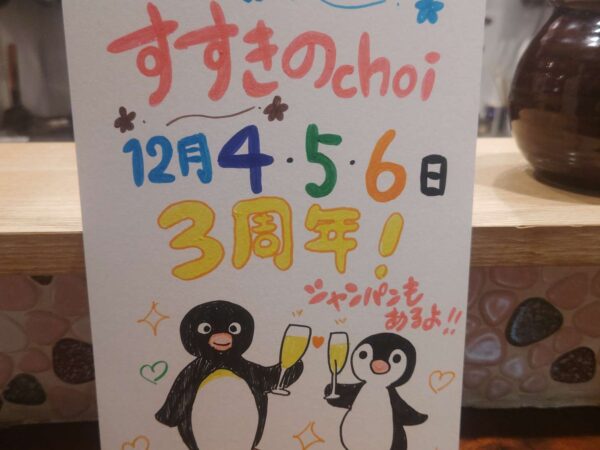 すすきのchoi
12月4・5・6日
3周年!
シャンパンも
あるよ!!